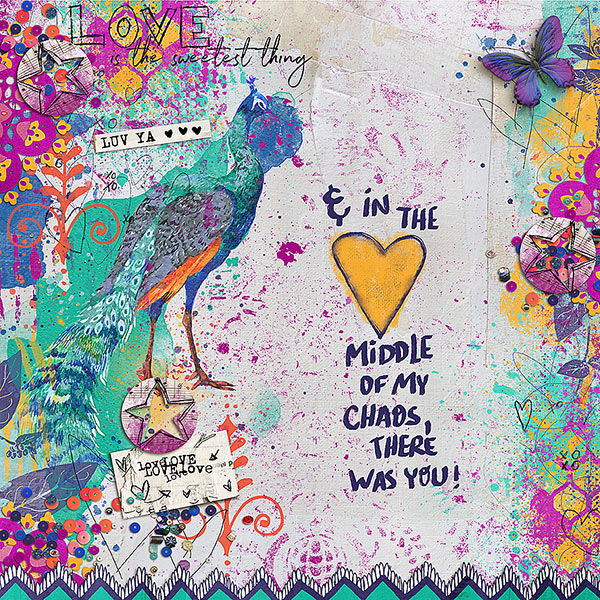 LOVE
is the sweetest thing
XO
LUV YA ♥♥♥
XO
XO
& IN THE
MIDDLE
OF MY
CHAOS,
THERE
WAS YOU!
XO
XO
love LOVE
LOVE love
love